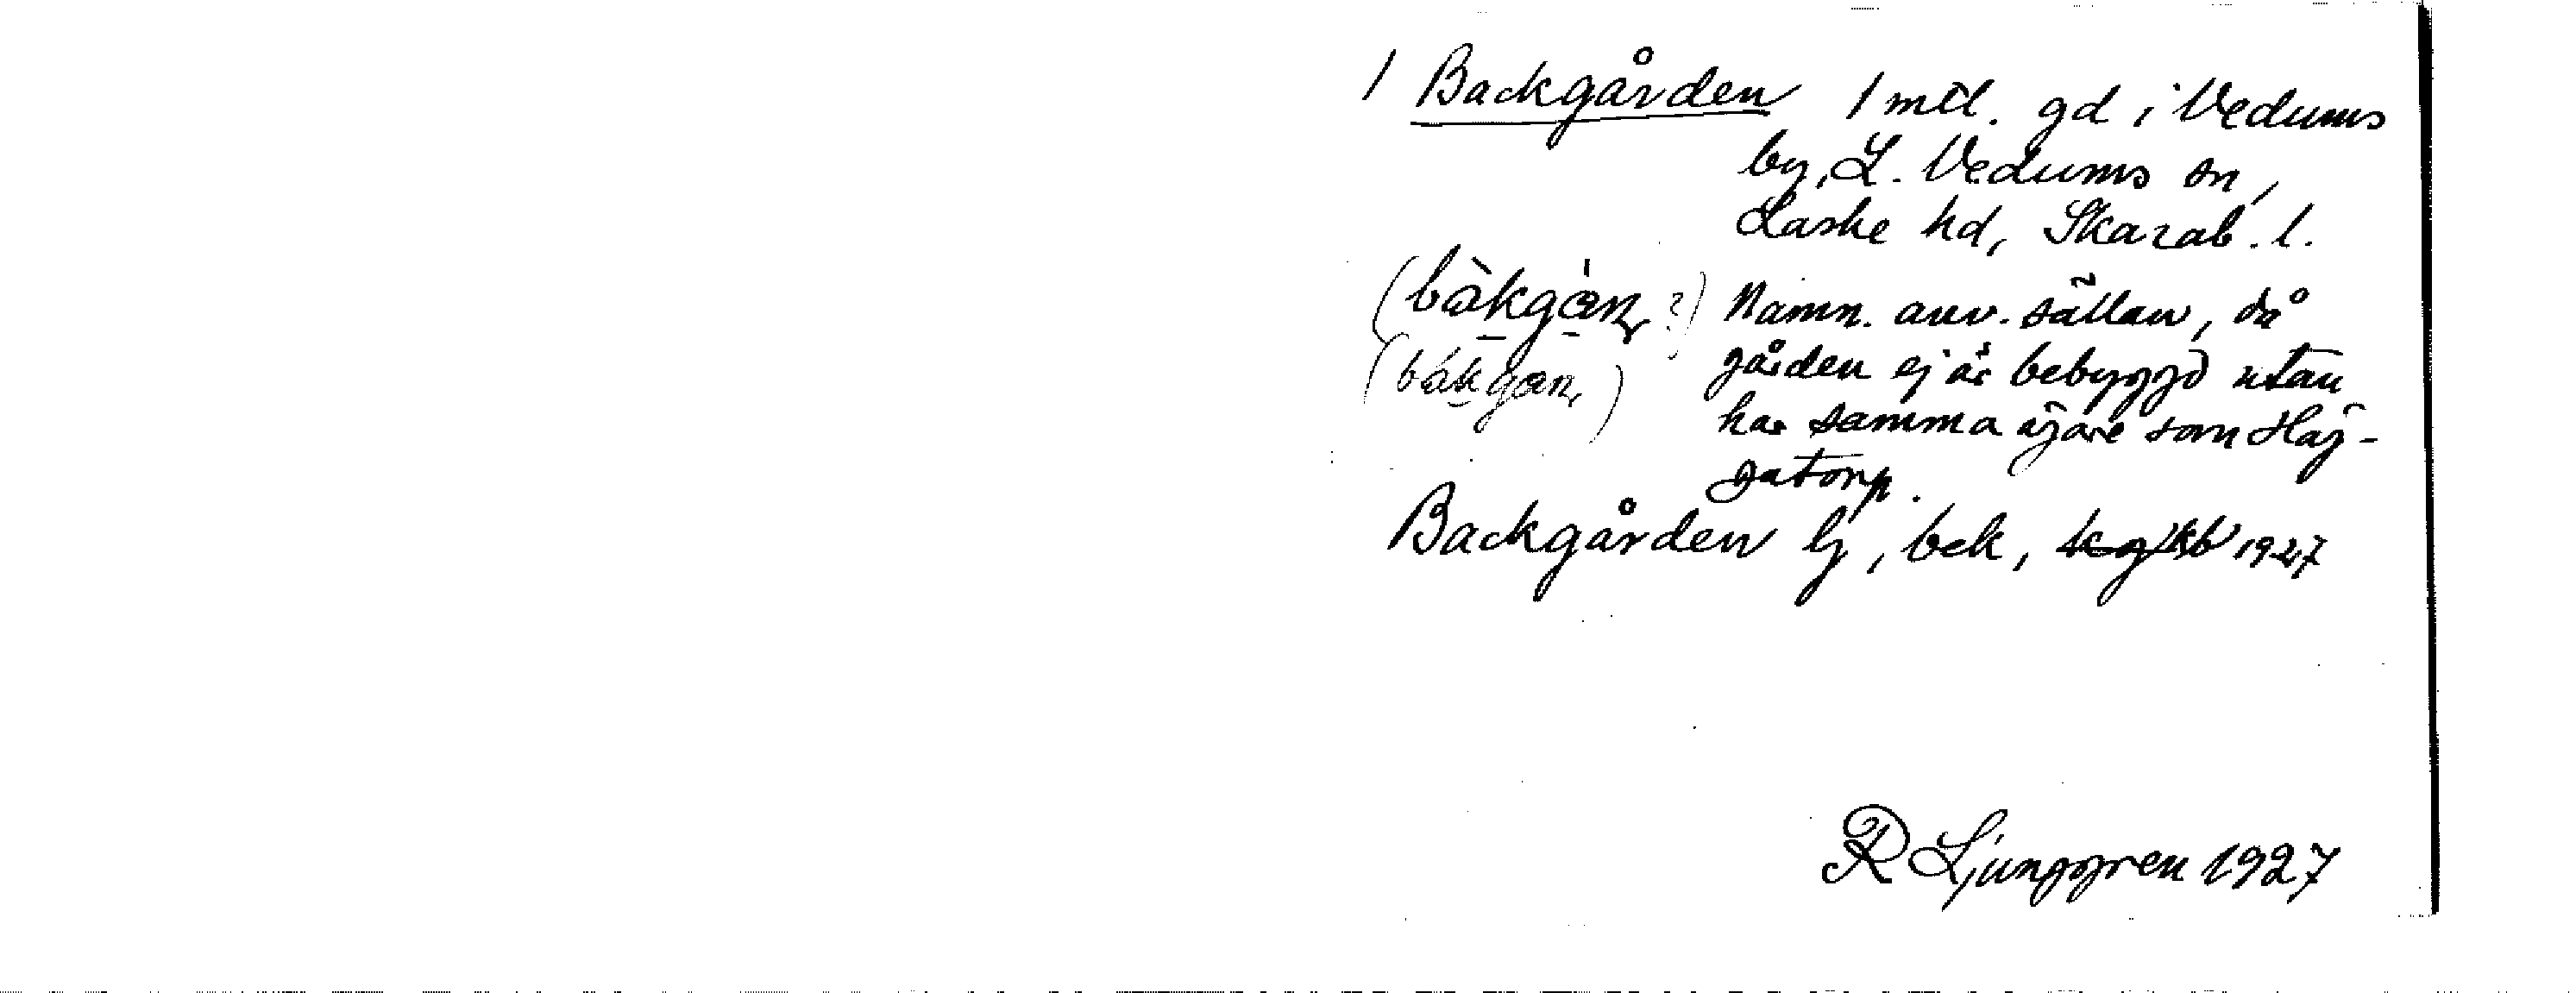 1 Backgården 1 mtl. gd i Vedums
by, L. Vedums sn,
Laske hd, Skarab. l.
(bàkgàn, ?) Namn. anv. sällan, då
(bákgan,) gården ej är bebyggd utan
har samma ägare som Häj-
gatorp.
Backgården lj, bek, kb 1927
R Ljunggren 1927